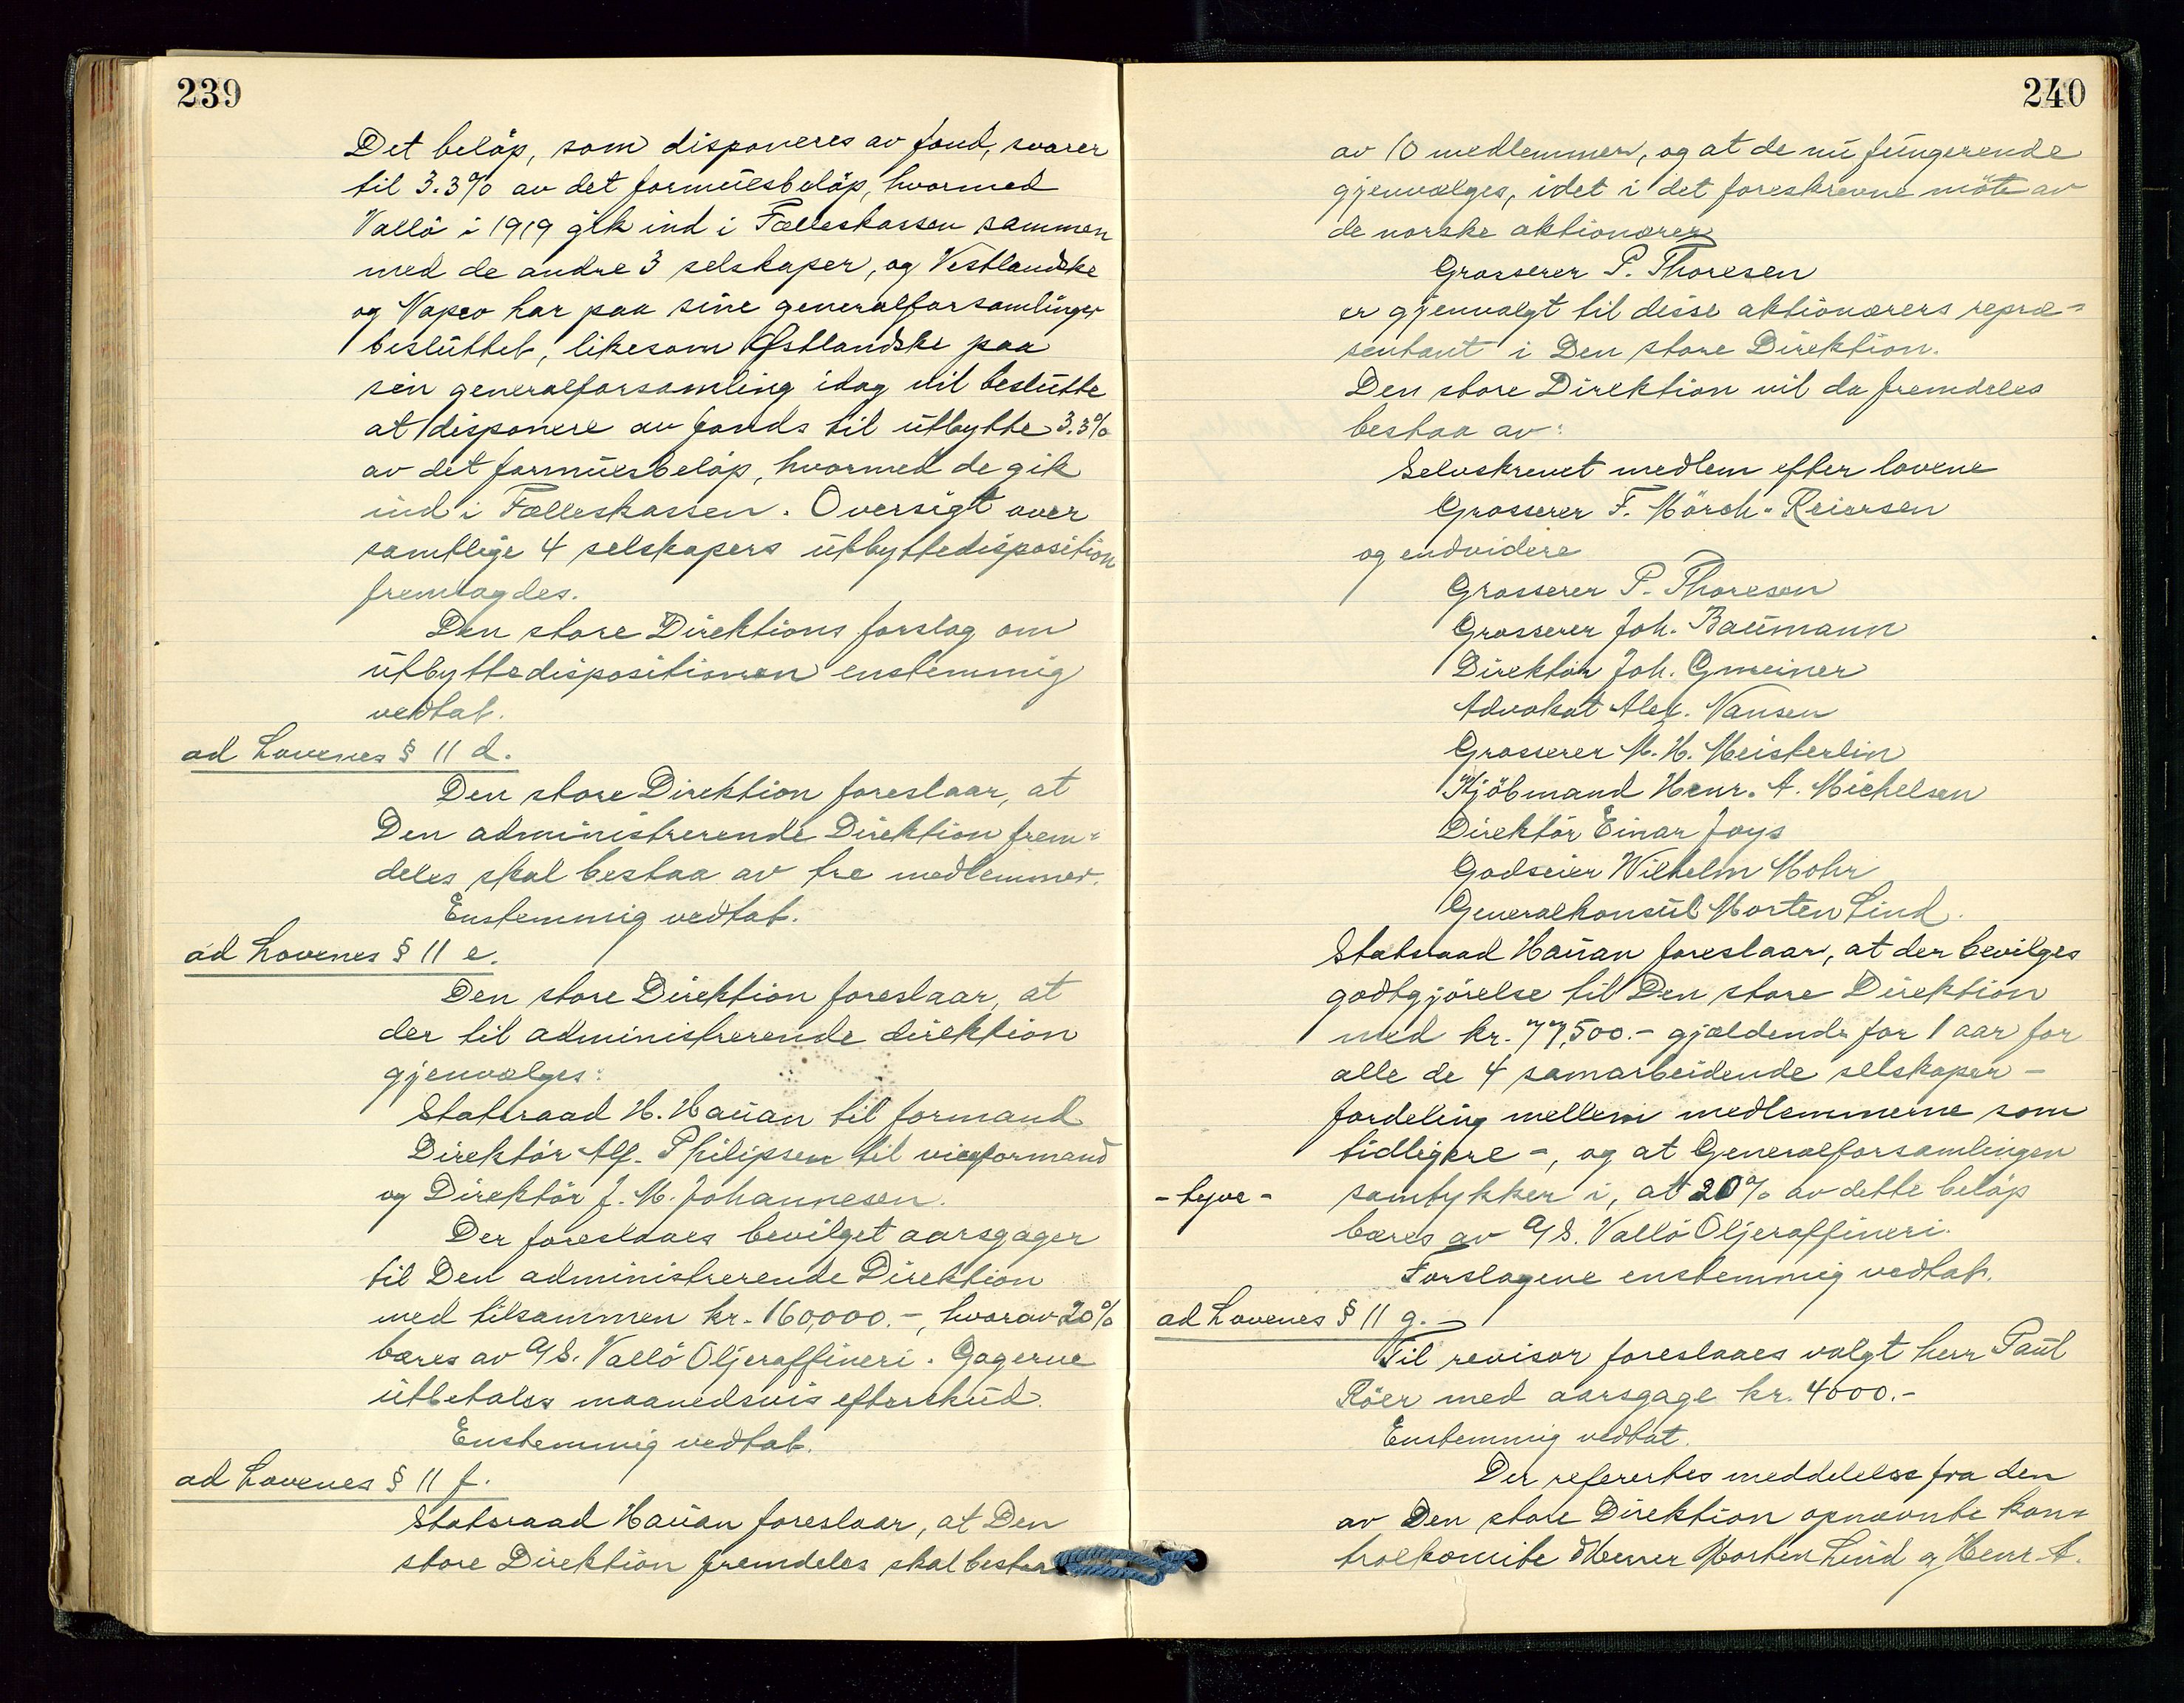 239
Det beløp, som disponeres av fond, svarer
til 3.3% av det formuesbeløp, hvormed
Vallö i 1919 gik ind i Fælleskassen sammen
med de andre 3 selskaper, og Vestlandske
og Vapco har paa sine generalforsamlinger
besluttet, likesom Østlandske paa
sin generalforsamling idag vil beslutte
at disponere av fonds til utbytte 3.3%
av det formuesbeløp, hvormed de gik
ind i Fælleskassen. Oversigt over
samtlige 4 selskapers utbyttedisposition
fremlagdes.
Den store Direktions forslag om
utbyttedispositionen enstemmig
vedtat.
ad Lovenes § 11 d.
Den store Direktion foreslaar, at
Den administrerende Direktion frem=
deles skal bestaa av tre medlemmer.
Enstemmig vedtat.
ad Lovenes § 11 e.
Den store Direktion foreslaar, at
der til administrerende direktion
gjenvælges:
Statsraad H. Hauan til formand
Direktör Alf. Philipsen til viceformand
og Direktör J. M. Johannesen.
Der foreslaaes bevilget aarsgager
til Den administrerende Direktion
med tilsammen kr. 160,000.-, hvorav 20%
bæres av A/S. Vallö Oljeraffineri. Gagerne
utbetales maanedsvis efterskud.
Enstemmig vedtat.
ad Lovenes § 11 f.
Statsraad Hauan foreslaar, at Den
store Direktion fremdeles skal bestaa
240
av 10 medlemmer, og at de nu fungerende
gjenvælges, idet i det foreskrevne möte av
de norske aktionærer
Grosserer P. Thoresen
er gjenvalgt til disse aktionærers repræ=
sentant i Den store Direktion.
Den store Direktion vil da fremdeles
bestaa av:
Selvskrevet medlem efter lovene
Grosserer F. Mörch-Reiersen
og endvidere
Grosserer P. Thoresen
Grosserer Joh. Baumann
Direktör Joh. Gmeiner
Advokat Alex. Nansen
Grosserer M. H. Meisterlin
Kjöbmand Henr. A. Michelsen
Direktör Einar Joys
Godseier Wilhelm Mohr
Generalkonsul Morten Lind.
Statsraad Hauan foreslaar, at der bevilges
godtgjörelse til Den store Direktion
med kr. 77,500.- gjældende for 1 aar for
alle de 4 samarbeidende selskaper -
fordeling mellem medlemmerne som
tidligere -, og at Generalforsamlingen
-tyve- samtykker i, at 20% av dette beløp
bæres av A/S. Vallö Oljeraffineri.
Forslagene enstemmig vedtat.
ad Lovenes § 11 g.
Til revisor foreslaaes valgt herr Paul
Röer med aarsgage kr. 4000.-
Enstemmig vedtat.
Der refertes meddelelse fra den
av Den store Direktion opnævnte kon=
trolkomite Herrer Morten Lind og Henr. A.